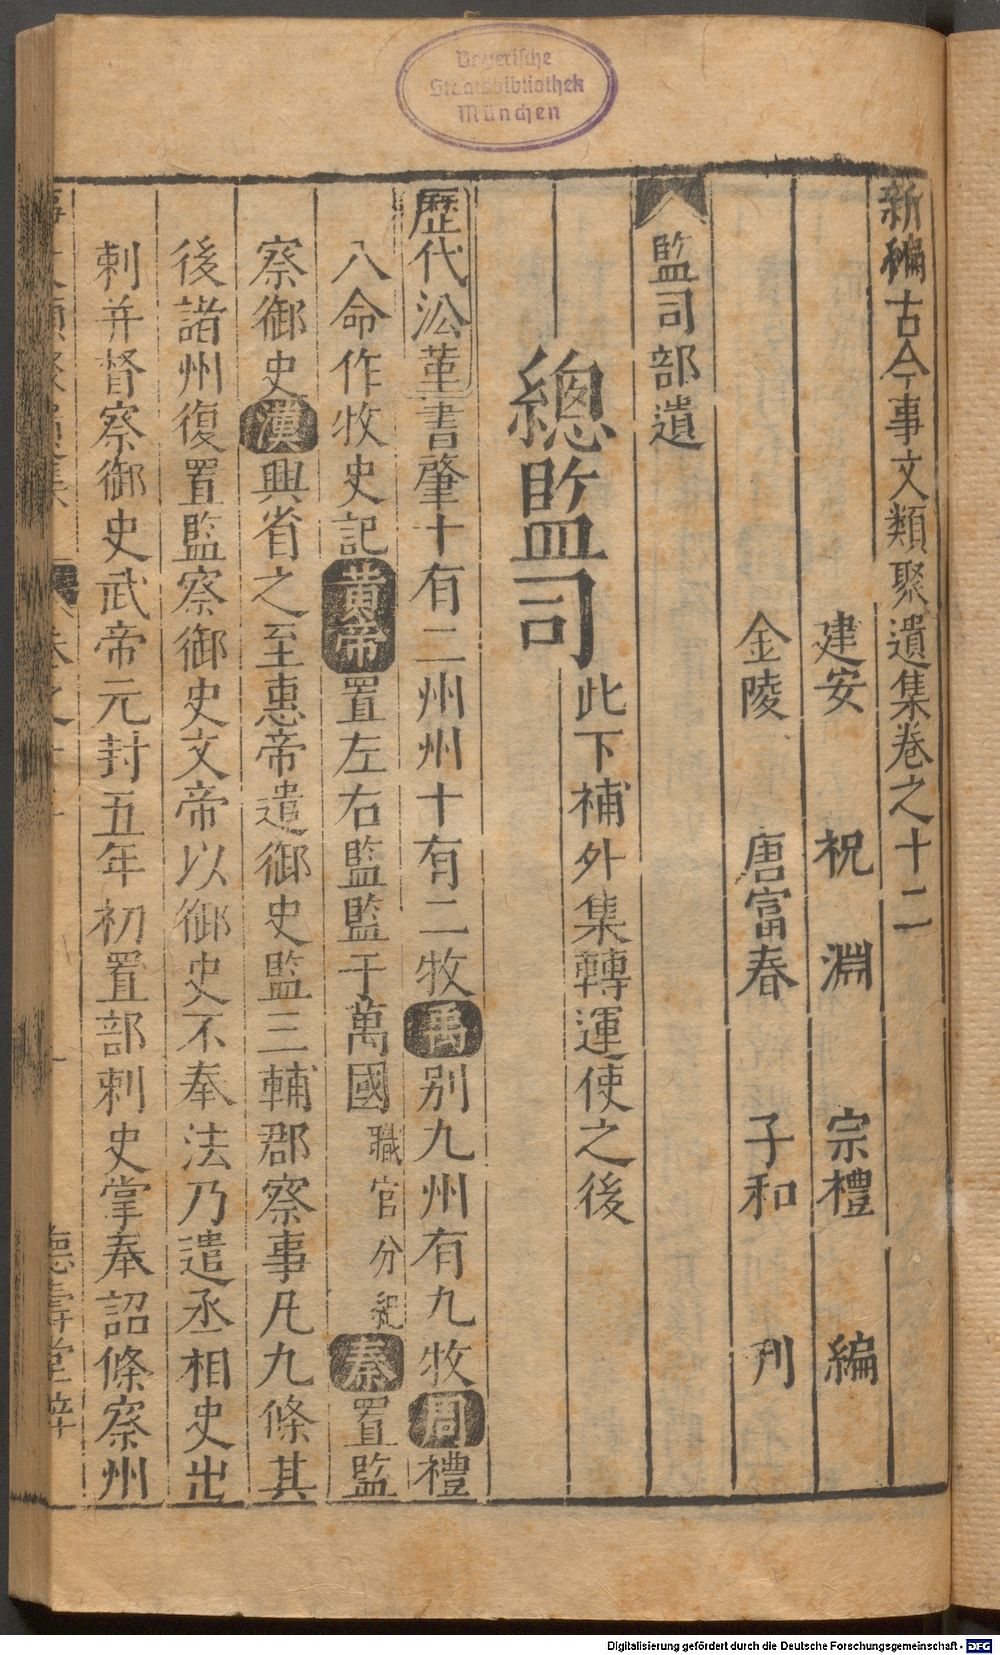 Bayerische
Staatsbibliothek
München
新編古今事文類聚遺集卷之十二
建安 祝 淵 宗禮 編
金陵 唐富春 子和 刋
監司部遺
總監司此下補外集轉運使之後
歷代沿革書肇十有二州州十有二牧禹别九州有九牧周禮
八命作牧史記黄帝置左右監監于萬國職官分紀秦置監
察御史漢興省之至惠帝遣御史監三輔郡察事凡九條其
後諸州復置監察御史文帝以御史不奉法乃遣丞相史出
刺并督察御史武帝元封五年初置部刺史掌奉詔條察州
德壽堂梓
Digitalisierung gefördert durch die Deutsche Forschungsgemeinschaft - DFG